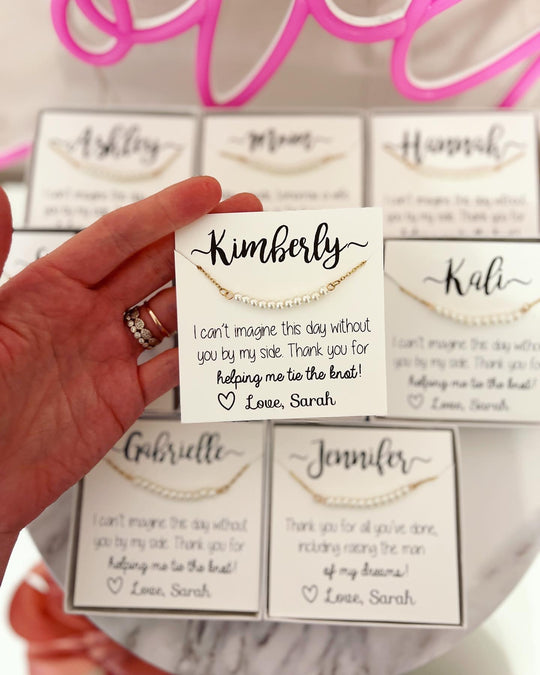 love
Ashley
I can't imagine this day without
you by my side. Thank you for
Mum
Hannah
I can't imagine this day without
you by my side. Thank you for
~Kimberly~
I can't imagine this day without
you by my side. Thank you for
helping me tie the knot!
♡ Love, Sarah
~Kali~
I can't imagine this day without
you by my side. Thank you for
helping me tie the knot!
♡ Love, Sarah
~Gabrielle~
I can't imagine this day without
you by my side. Thank you for
helping me tie the knot!
♡ Love, Sarah
~Jennifer~
Thank you for all you've done,
including raising the man
of my dreams!
♡ Love, Sarah